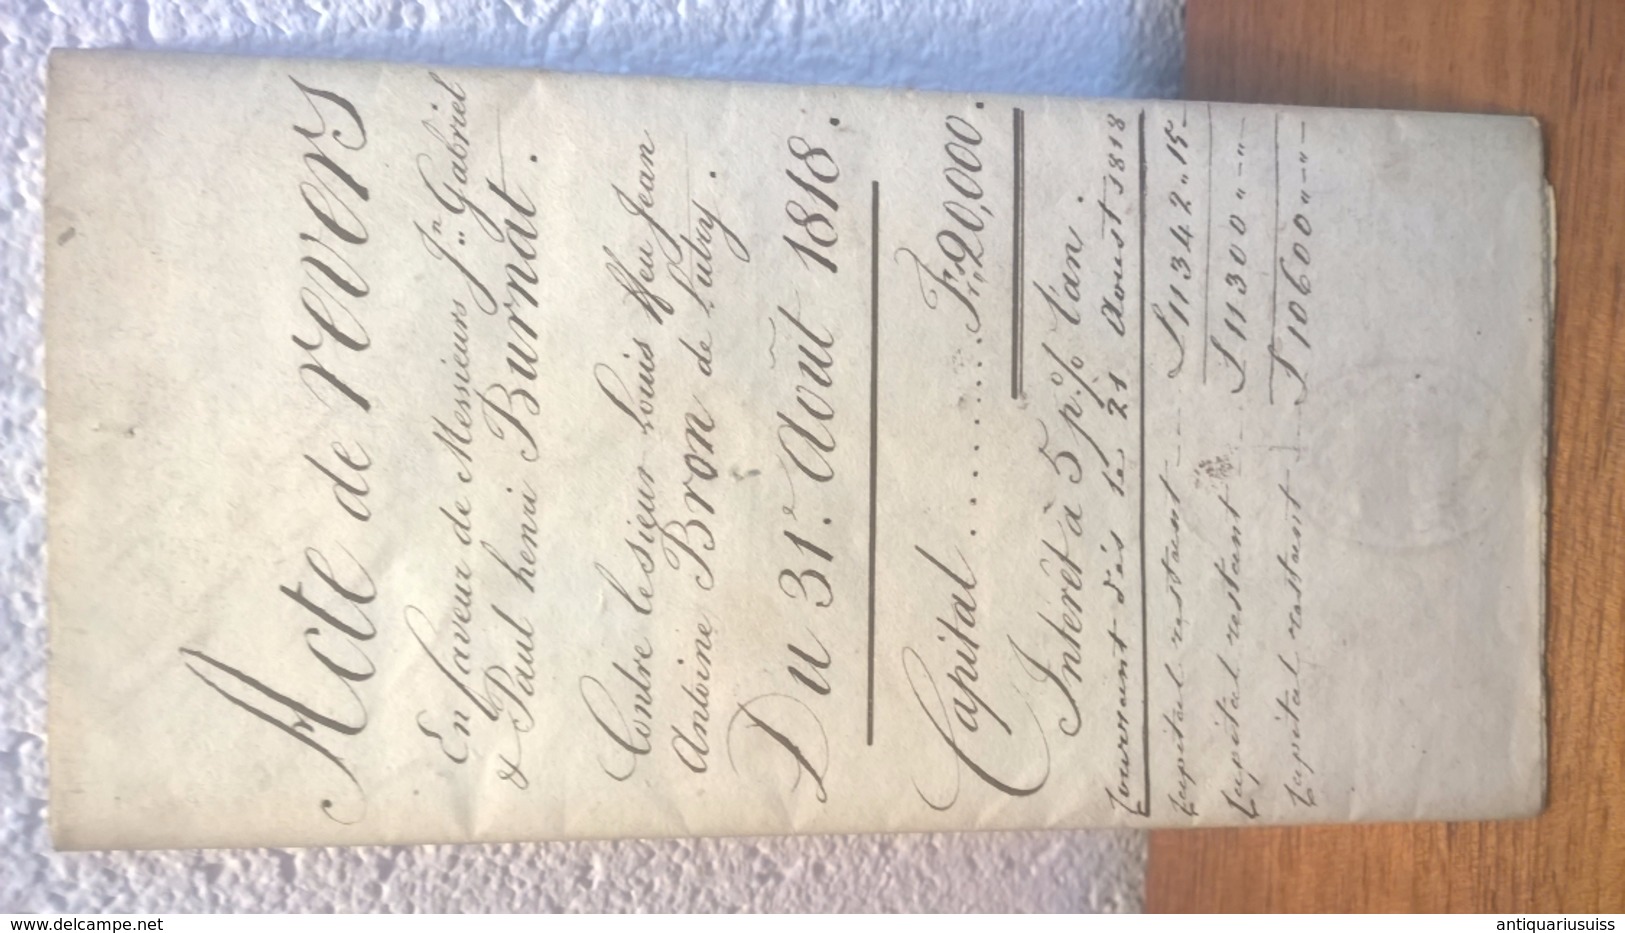 Acte de revers
En faveur de Messieurs Jn. Gabriel
& Paul henri Burnat.
Contre le sieur Louis ffeu Jean
Antoine Bron de Lutry.
Du 31e. Août 1818.
Capital ........ Fr. 20,000.
Intérêt à 5 p.% l'an.
Courrant dès le 21 Aoust 1818
Capital restant - - L 11342 „ 15 -
Capital restant - - L 11300 „ - „ -
Capital restant - - L 10600 „ - „ -
www.delcampe.net
antiquariusuiss